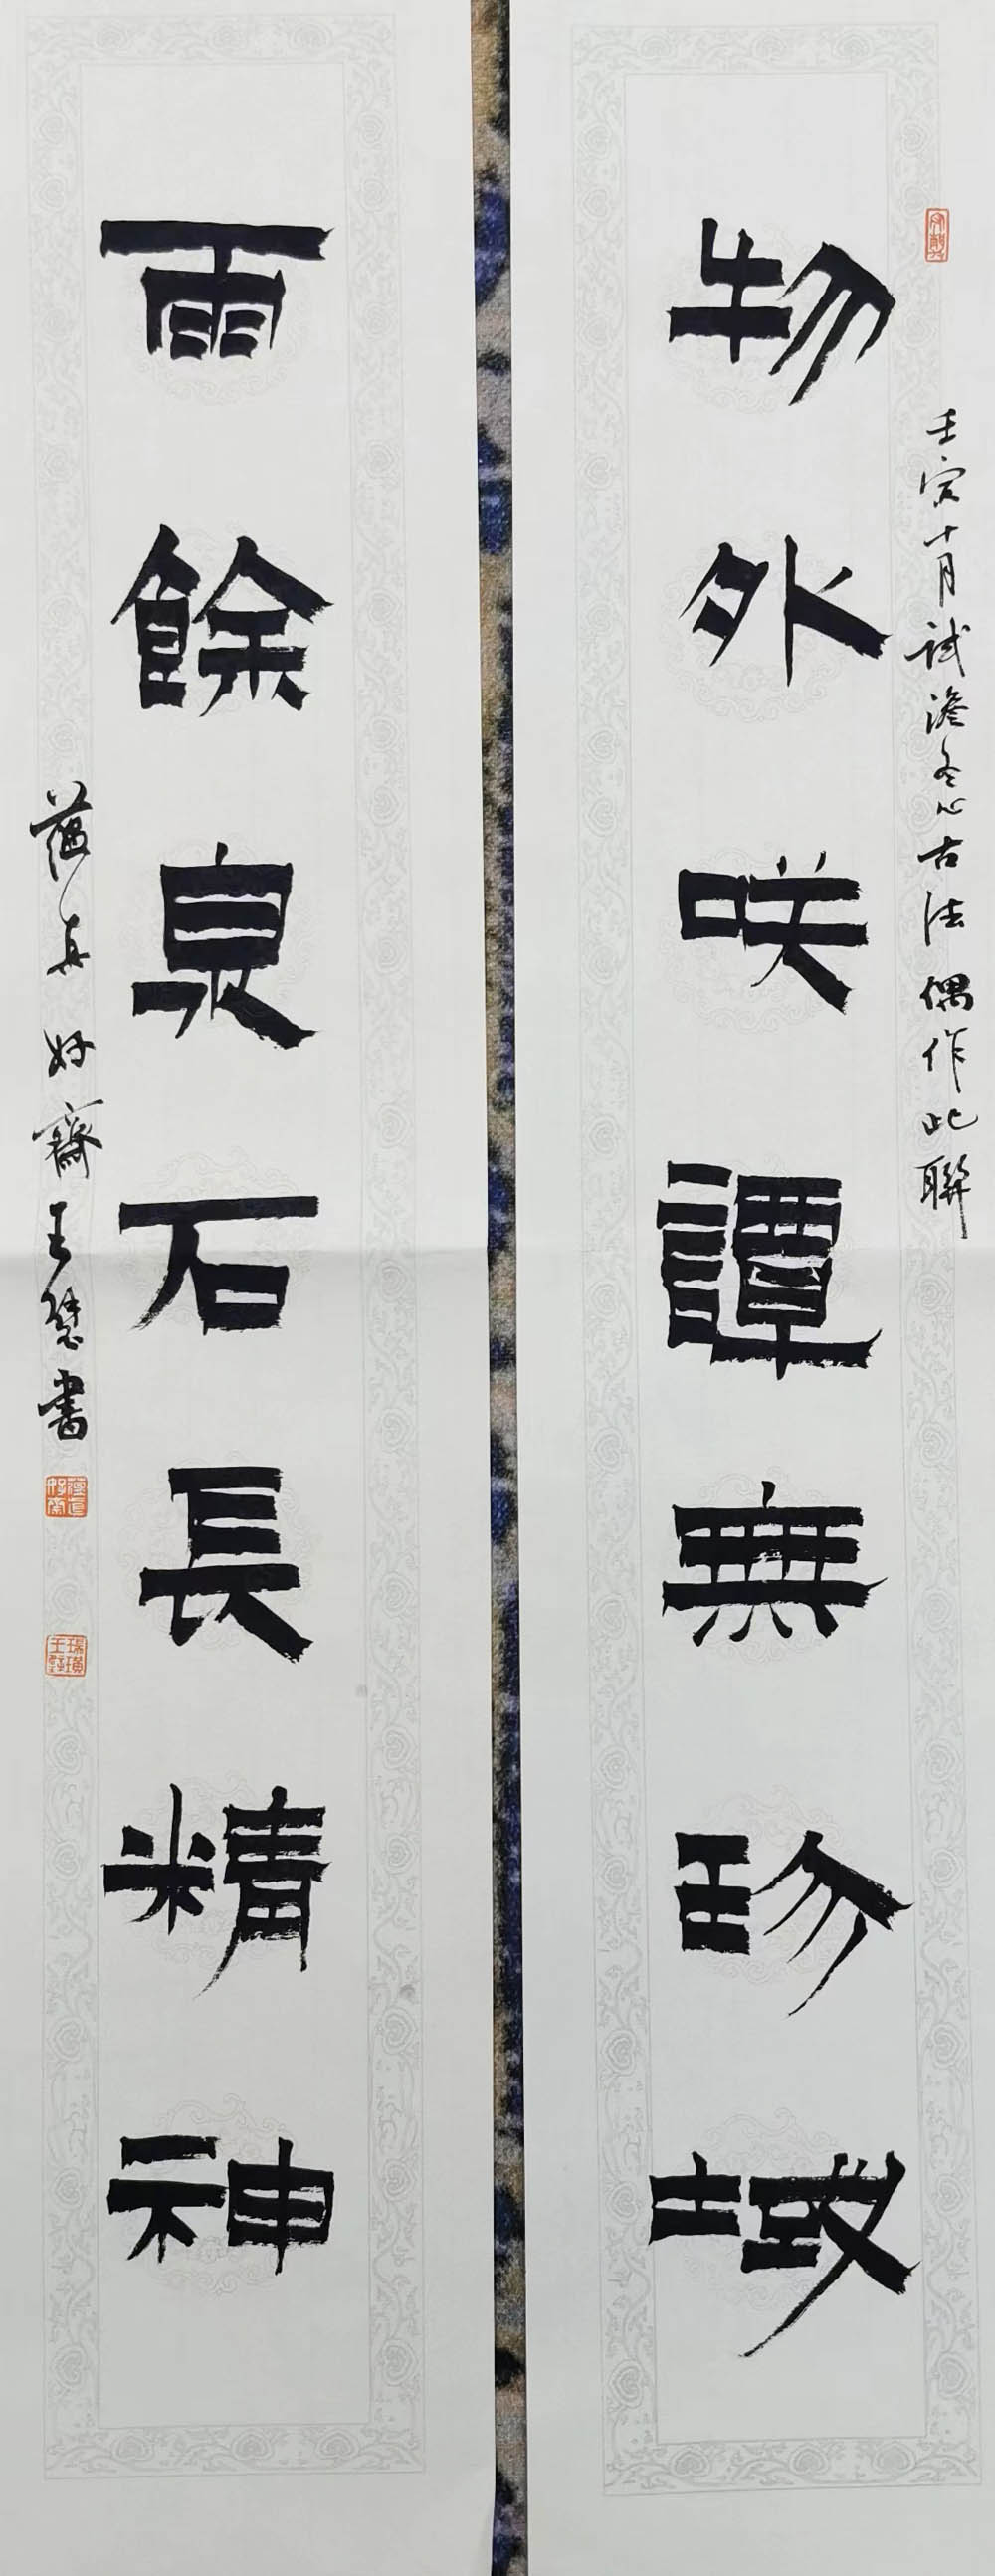 壬寅十月試澹冬心古法偶作此聯
物外咲譚無畛域
雨餘泉石長精神
蘊真好齋王慧書